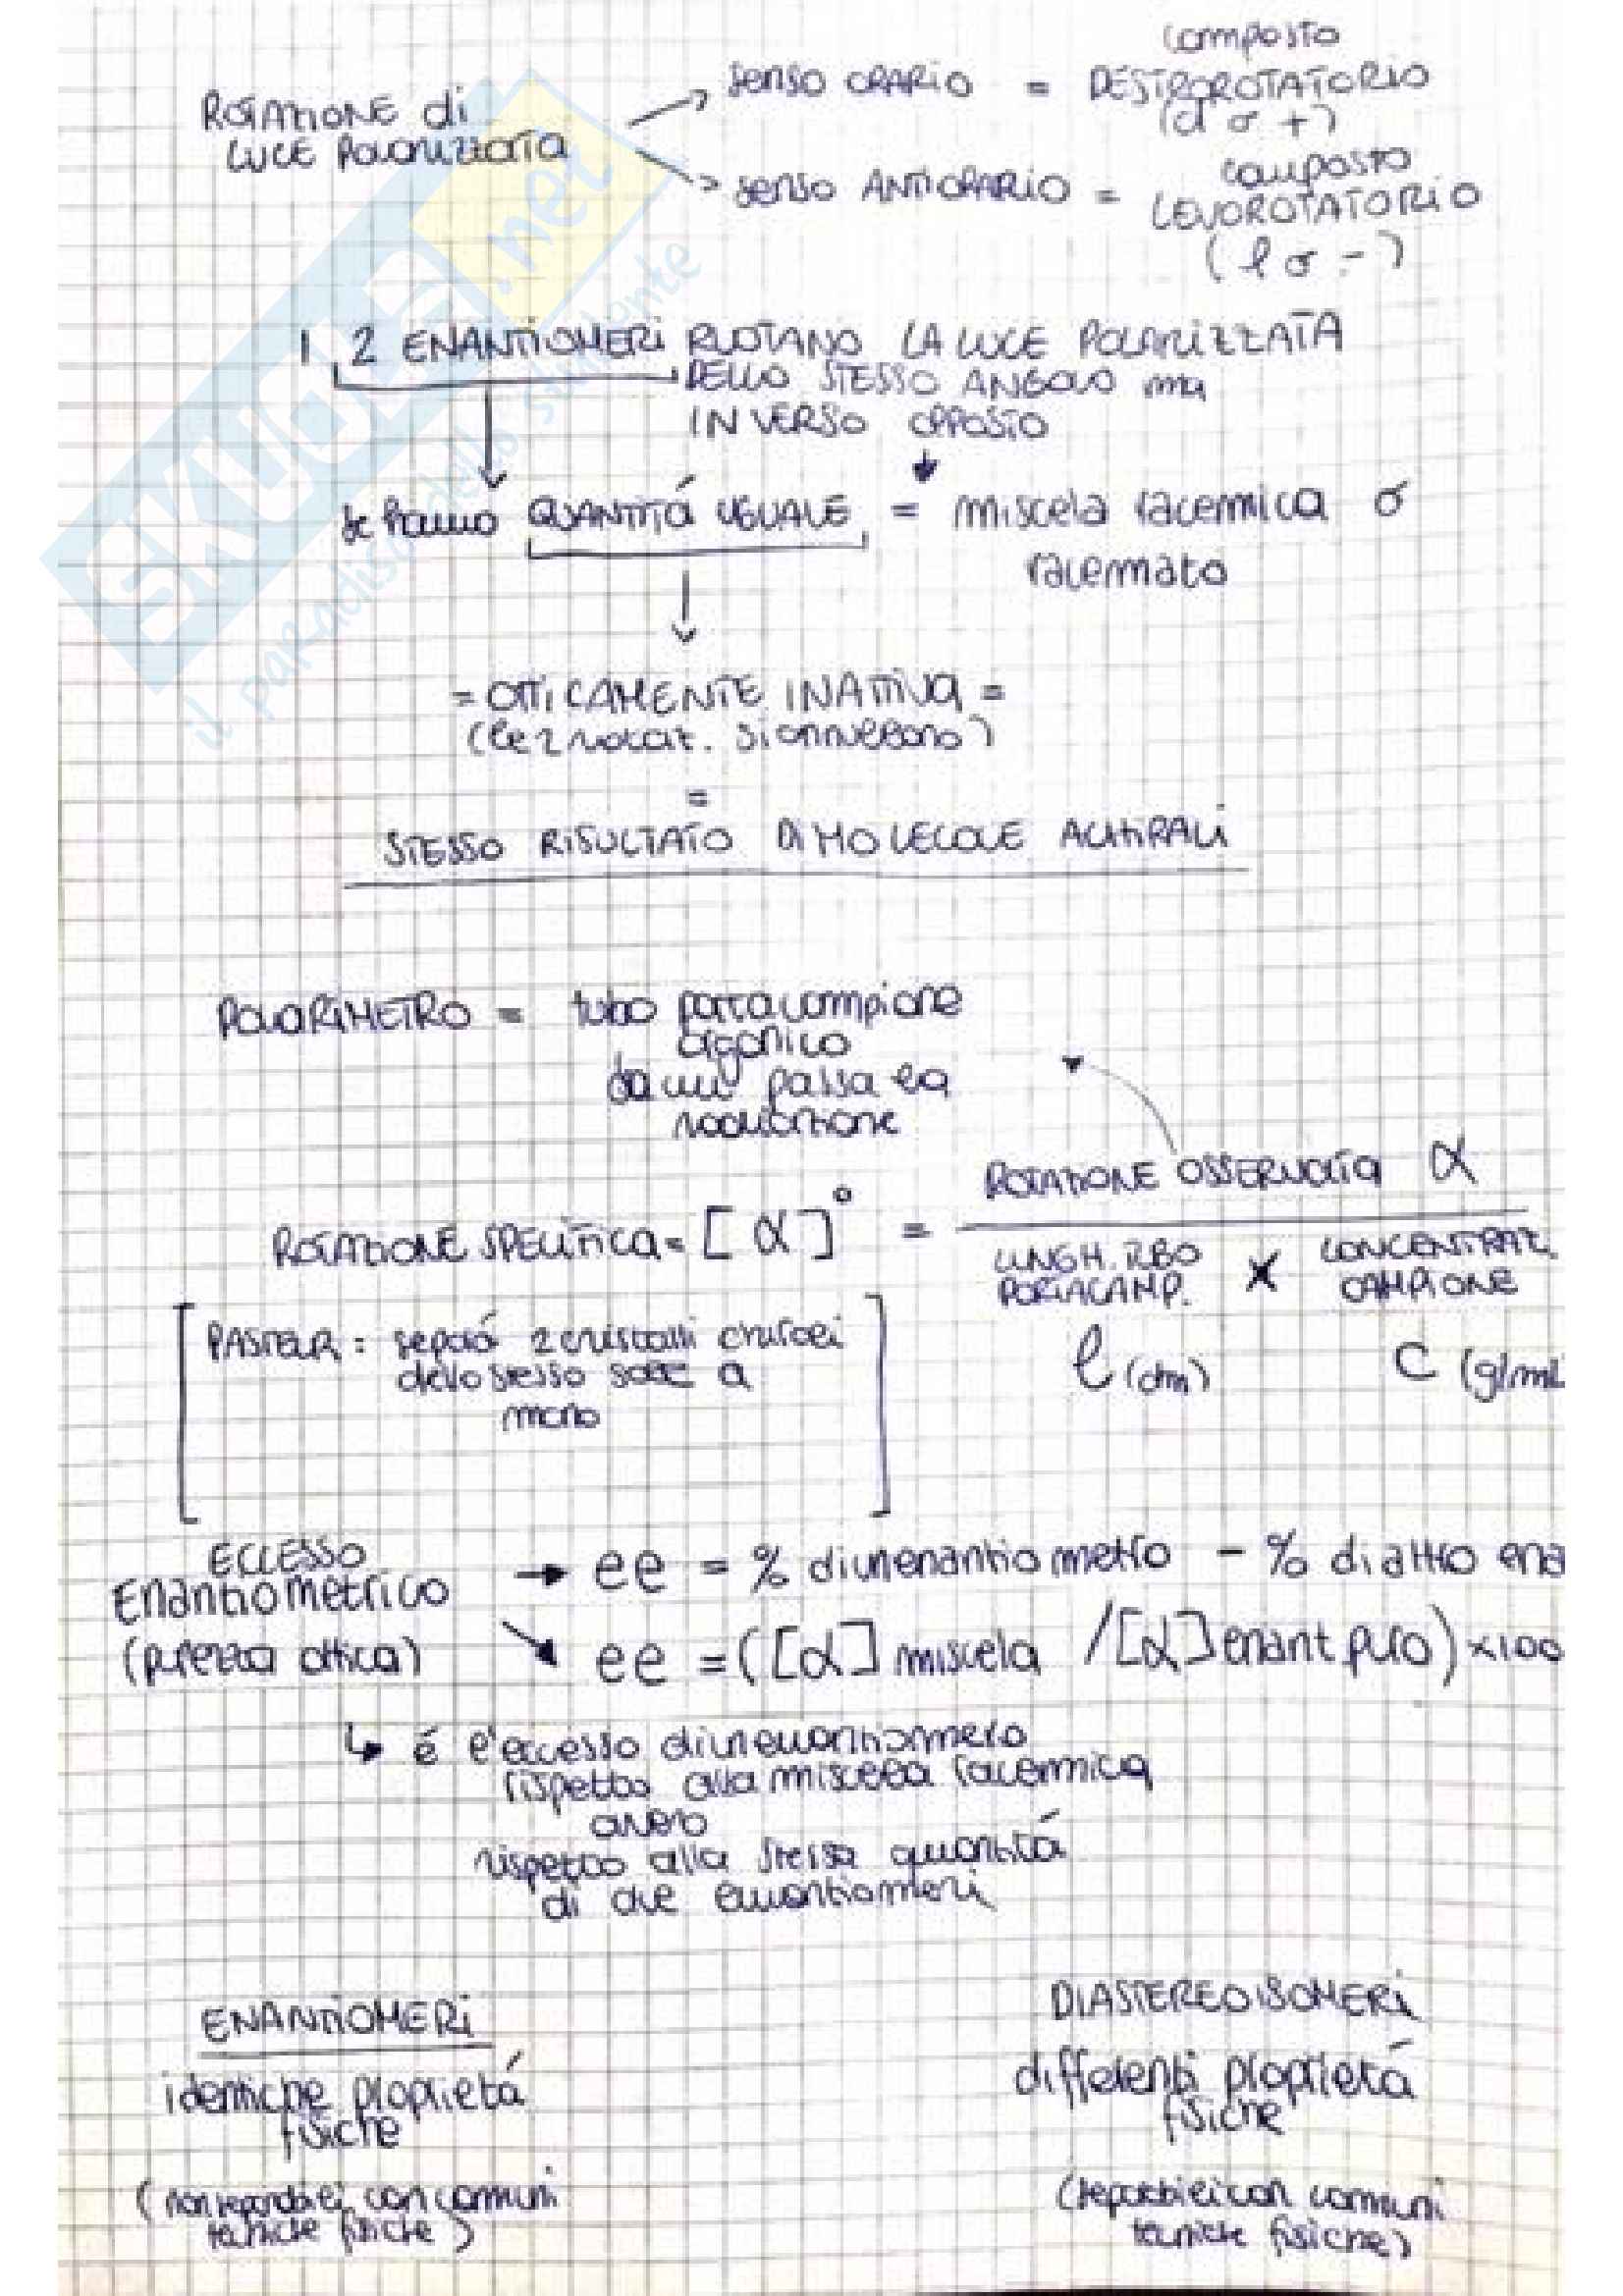 ROTAZIONE di
LUCE POLARIZZATA
senso ORARIO = composto
DESTROROTATORIO
(d o +)
senso ANTIORARIO = composto
LEVOROTATORIO
(l o -)
I 2 ENANTIOMERI RUOTANO LA LUCE POLARIZZATA
DELLO STESSO ANGOLO ma
IN VERSO OPPOSTO
se hanno QUANTITÁ UGUALE = miscela racemica o
racemato
= OTTICAMENTE INATTIVA =
(le 2 rotaz. si annullano)
=
STESSO RISULTATO DI MOLECOLE ACHIRALI
POLARIMETRO = tubo portacampione
organico
da cui passa la
radiazione
ROTAZIONE SPECIFICA = [α]° = ROTAZIONE OSSERVATA α
LUNGH. TUBO
PORTACAMP. X CONCENTRAZ.
CAMPIONE
l (dm) C (g/mL
[PASTEUR: separó 2 cristalli chirali
dello stesso sale a
mano]
ECCESSO
Enantiometrico
(purezza ottica)
→ ee = % di un enantiometro - % di altro ena
→ ee = ([α] miscela / [α] enant puro) x100
↳ é l'eccesso di un enantiomero
rispetto alla miscela racemica
ovvero
rispetto alla stessa quantitá
di due enantiomeri
ENANTIOMERI
identiche proprietá
fisiche
(non separabili con comuni
tecniche fisiche)
DIASTEREOISOMERI
differenti proprietá
fisiche
(separabili con comuni
tecniche fisiche)
SKUOLA.net
il paradiso dello studente